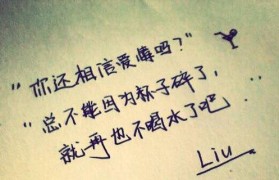 “你还相信爱情吗？”
“总不能因为杯子碎了，
就再也不喝水了吧．”
Liu